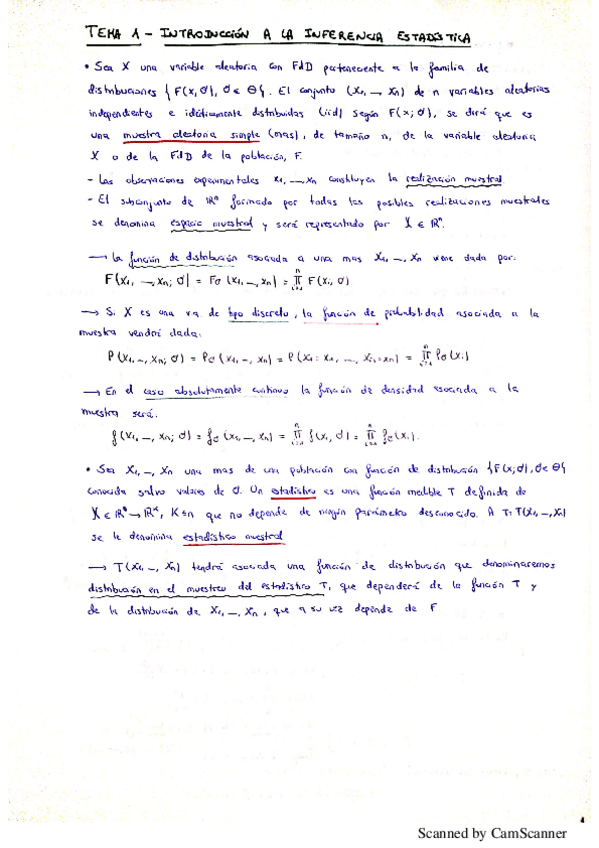 TEMA 1 - INTRODUCCIÓN A LA INFERENCIA ESTADÍSTICA
• Sea X una variable aleatoria con FdD perteneciente a la familia de
distribuciones {F(x,θ), θ ∈ Θ}. El conjunto (X₁, —, Xn) de n variables aleatorias
independientes e idénticamente distribuidas (iid) según F(x;θ), se dirá que es
una muestra aleatoria simple (mas), de tamaño n, de la variable aleatoria
X o de la FdD de la población, F.
- Las observaciones experimentales x₁, —, xn constituyen la realización muestral
- El subconjunto de ℝⁿ formado por todas las posibles realizaciones muestrales
se denomina espacio muestral y será representado por X ∈ ℝⁿ.
→ La función de distribución asociada a una mas X₁, —, Xn viene dada por:
F(x₁, —, xn; θ) = Fθ(x₁, —, xn) = ∏ F(xi, θ)
→ Si X es una va de tipo discreto, la función de probabilidad asociada a la
muestra vendrá dada:
P(x₁, —, xn; θ) = Pθ(x₁, —, xn) = P(X₁=x₁, —, Xn=xn) = ∏ Pθ(xi)
→ En el caso absolutamente continuo la función de densidad asociada a la
muestra será:
f(x₁, —, xn; θ) = fθ(x₁, —, xn) = ∏ f(xi, θ) = ∏ fθ(xi).
• Sea X₁, —, Xn una mas de una población con función de distribución {F(x;θ), θ ∈ Θ}
conocida salvo valores de θ. Un estadístico es una función medible T definida de
X ∈ ℝⁿ → ℝᵏ, K≤n que no depende de ningún parámetro desconocido. A T=T(X₁, —, Xn)
se le denomina estadístico muestral
→ T(X₁, —, Xn) tendrá asociada una función de distribución que denominaremos
distribución en el muestreo del estadístico T, que dependerá de la función T y
de la distribución de X₁, —, Xn, que a su vez depende de F
Scanned by CamScanner